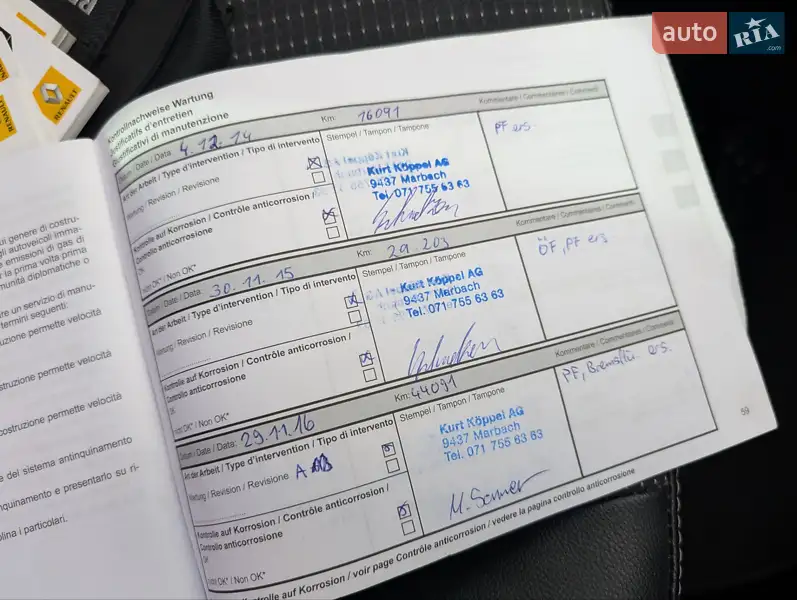 auto RIA .com
RENAULT
RENAULT
Kontrollnachweise Wartung
Justificatifs d'entretien
Giustificativi di manutenzione
Datum / Date / Data: 4.12.14 Km: 16091 Kommentare / Commentaires / Commenti
Art der Arbeit / Type d'intervention / Tipo di intervento Stempel / Tampon / Tampone PF ers
Wartung / Revision / Revisione
Kurt Köppel AG
9437 Marbach
Tel. 071 755 63 63
Kontrolle auf Korrosion / Contrôle anticorrosion /
Controllo anticorrosione
OK
Non OK* / Non OK*
Datum / Date / Data: 30.11.15 Km: 29.203 Kommentare / Commentaires / Commenti
Art der Arbeit / Type d'intervention / Tipo di intervento Stempel / Tampon / Tampone ÖF, PF ers
Wartung / Revision / Revisione
Kurt Köppel AG
9437 Marbach
Tel. 071 755 63 63
Kontrolle auf Korrosion / Contrôle anticorrosion /
Controllo anticorrosione
OK
Non OK* / Non OK*
Datum / Date / Data: 29.11.16 Km: 44091 Kommentare / Commentaires / Commenti
Art der Arbeit / Type d'intervention / Tipo di intervento Stempel / Tampon / Tampone PF, Bremsflü. ers.
Wartung / Revision / Revisione A
Kurt Köppel AG
9437 Marbach
Tel. 071 755 63 63
Kontrolle auf Korrosion / Contrôle anticorrosion /
Controllo anticorrosione
OK
Non OK* / Non OK*
Kontrolle auf Korrosion / voir page Contrôle anticorrosion / vedere la pagina controllo anticorrosione
59
ui genere di costru-
gli autoveicoli imma-
emissioni di gas di
r la prima volta prima
munità diplomatiche o
re un servizio di manu-
termini seguenti:
uzione permette velocità
struzione permette velocità
costruzione permette velocità
e del sistema antinquinamento
nquinamento e presentarlo su ri-
plina i particolari.